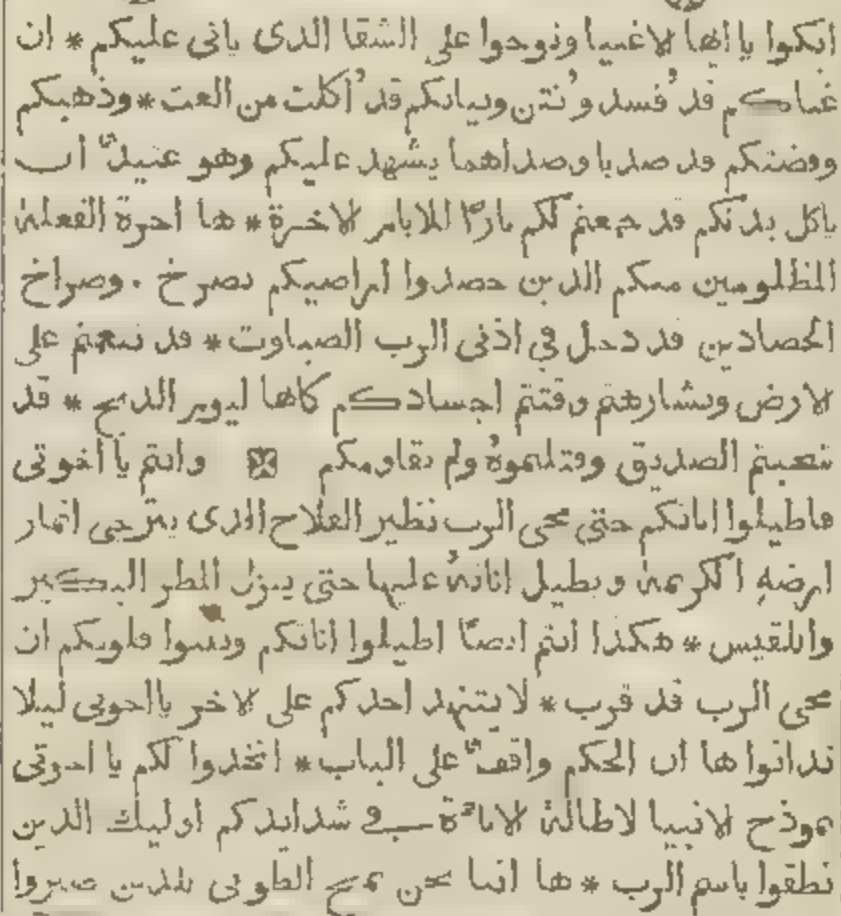 ابكوا يا ايها لاغنيا ونوحوا على الشقا الدى ياتى عليكم * ان
غناكم قد فسد ونتن وثيابكم قد اكلت من العث * وذهبكم
وفضتكم قد صديا وصداهما يشهد عليكم وهو عتيد ان
ياكل بدنكم قد جمعتم لكم نارًا للايام لاخرة * ها اجرة الفعلة
المظلومين منكم الدين حصدوا اراضيكم تصرخ . وصراخ
الحصادين قد دخل في اذنى الرب الصباوت * قد تنعمتم على
لارض وبشارهتم وقتتم اجسادكم كانها ليوم الدبح * قد
شعبتم الصديق وقتلتموهُ ولم يقاومكم وانتم يا اخوتى
فاطيلوا اناتكم حتى مجى الرب نظير الفلاح الدى يترجى اثمار
ارضهِ الكريمة ويطيل اناتهُ عليها حتى ينزل المطر البكير
واللقيس * هكذا انتم ايضًا اطيلوا اناتكم وثبتوا قلوبكم ان
مجى الرب قد قرب * لا يتنهد احدكم على لاخر يا اخوتى ليلا
تدانوا ها ان الحكم واقفٌ على الباب * اتخدوا لكم يا اخوتى
نموذج لانبيا لاطالة لاناة في شدايدكم اوليك الدين
نطقوا باسم الرب * ها اننا نحن نمنح الطوبى للدين صبروا